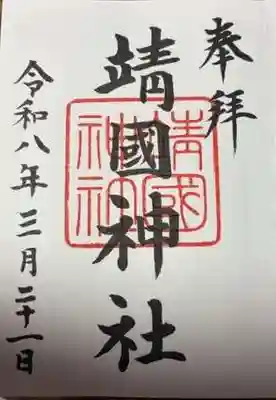 奉拝
靖國神社
靖國神社
令和八年三月二十一日